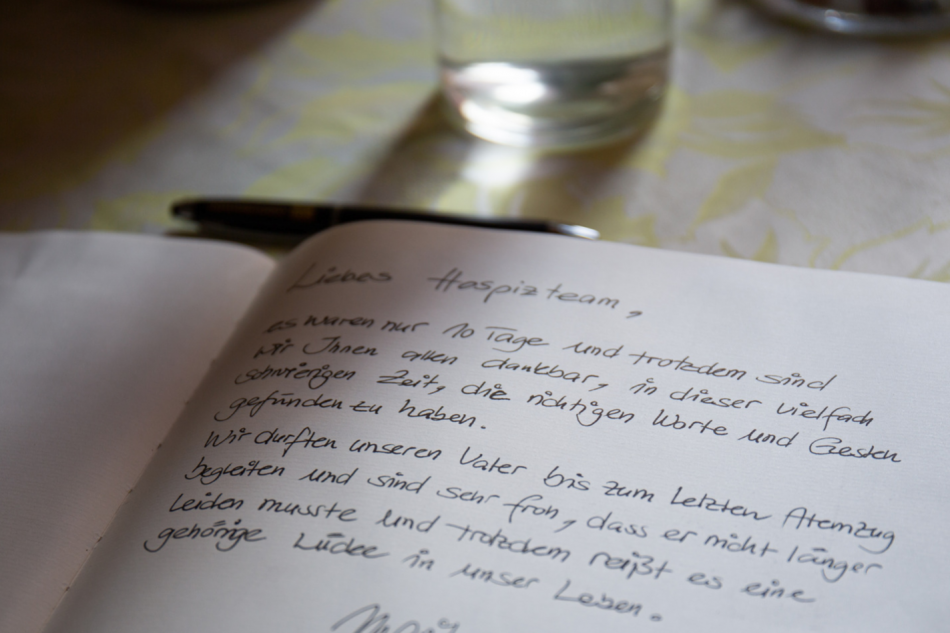 Liebes Hospizteam,
es waren nur 10 Tage und trotzdem sind
wir Ihnen allen dankbar, in dieser vielfach
schwierigen Zeit, die richtigen Worte und Gesten
gefunden zu haben.
Wir durften unseren Vater bis zum letzten Atemzug
begleiten und sind sehr froh, dass er nicht länger
Leiden musste und trotzdem reißt es eine
gehörige Lücke in unser Leben.